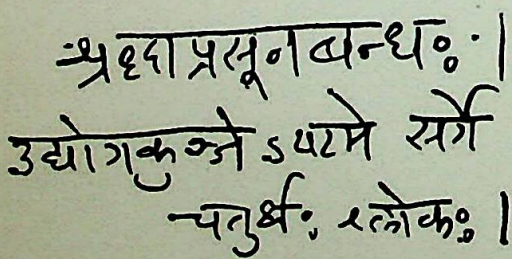 श्रद्धाप्रसूनबन्धः ।
उद्योगकुञ्जे ऽष्टमे सर्गे
चतुर्थः श्लोकः ।